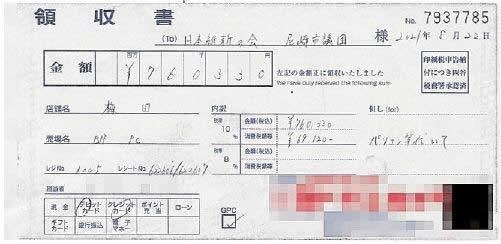 領収書
No. 7937785
(TO) 日本維新の会 尼崎市議団 様 2021年8月22
金額 ¥760330
百万 千 円
左記の金額正に領収いたしました
We have duly received the following sum
印紙税申告納
付につき四谷
税務署承認済
店舗名 梅田
内訳
但し (for)
税率 10% 金額(税込) ¥760,330
消費税額等 ¥69,120-
パソコン等代として
売場名 BF PC
税率 8% 金額(税込)
消費税額等
レジNo. レシートNo.
担当者
現金 デビットカード クレジットカード ポイント充当 ローン
ギフトカード 銀行振込 電子マネー
QPC